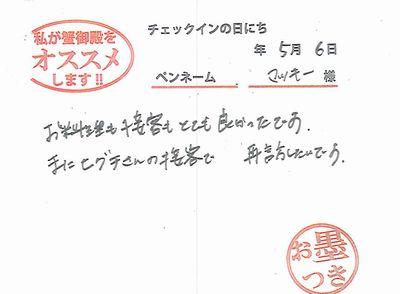 私が蟹御殿を
オススメ
します!!
チェックインの日にち
年 5月 6日
ペンネーム マッキー 様
お料理も接客もとても良かったです.
またヒグチさんの接客で 再訪したいです.
お墨
つき